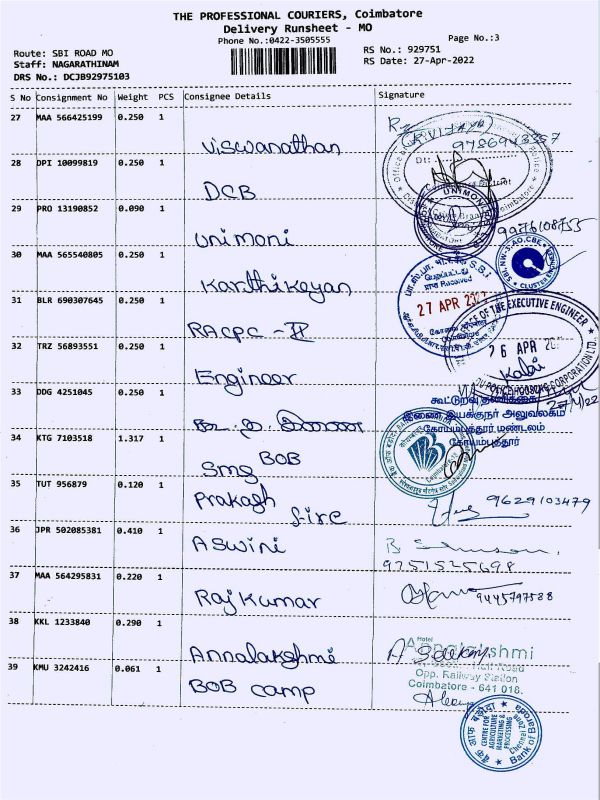 THE PROFESSIONAL COURIERS, Coimbatore
Delivery Runsheet - MO
Phone No.:0422-3505555
Page No.:3
Route: SBI ROAD MO
RS No.: 929751
Staff: NAGARATHINAM
RS Date: 27-Apr-2022
DRS No.: DCJB92975103
S No Consignment No Weight PCS Consignee Details Signature
27 MAA 566425199 0.250 1
(R.VIJAYA)
Viswanathan
28 DPI 10099819 0.250 1
Dt:
DCB
UNIMONI
29 PRO 13190852 0.090 1
Unimoni
9976108755
30 MAA 565540805 0.250 1
Karthikeyan
S.B.I.
27 APR
31 BLR 690307645 0.250 1
RACPC - II
OF THE EXECUTIVE ENGINEER
32 TRZ 56893551 0.250 1
26 APR
Engineer
33 DDG 4251045 0.250 1
கூட்டுறவு தணிக்கை
இணை இயக்குநர் அலுவலகம்
கோயம்புத்தூர் மண்டலம்
கோயம்புத்தூர்
34 KTG 7103518 1.317 1
BOB
Smg
35 TUT 956879 0.120 1
Prakash
fire
9629103479
36 JPR 502085381 0.410 1
Aswini
37 MAA 564295831 0.220 1
Rajkumar
9445797588
38 KKL 1233840 0.290 1
Annalakshmi
Hotel
Annalakshmi
Opp. Railway Station
Coimbatore - 641 018.
39 KMU 3242416 0.061 1
BOB camp
CENTRE FOR
AGRICULTURE
MARKETING &
PROCESSING
Chennai Zone
Bank of Baroda
बैंक ऑफ़ बड़ौदा